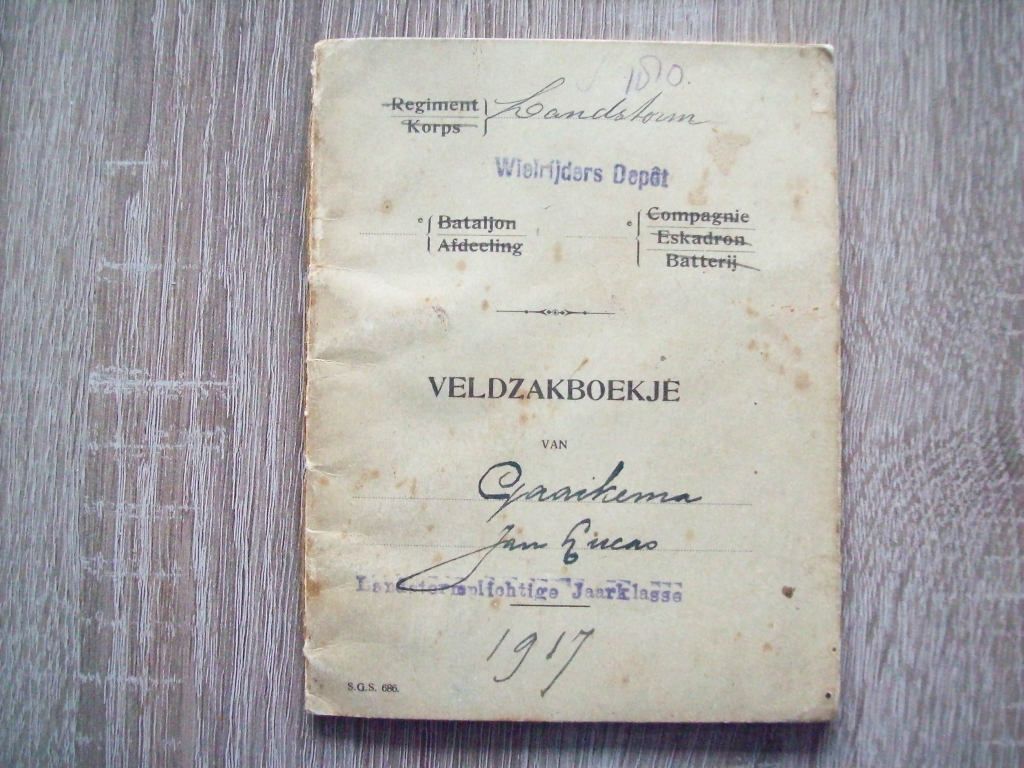 1810.
Regiment
Korps
Landstorm
Wielrijders Depôt
e Bataljon
Afdeeling
e Compagnie
Eskadron
Batterij
VELDZAKBOEKJE
VAN
Gaaikema
Jan Lucas
Landstormplichtige Jaarklasse
1917
S.G.S. 686.